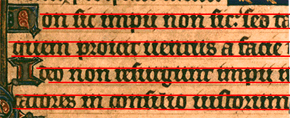 Non sic impii non sic: sed ta
quem proicit uentus a facie t
Ideo non resurgunt impii
catores in consilio iustorum